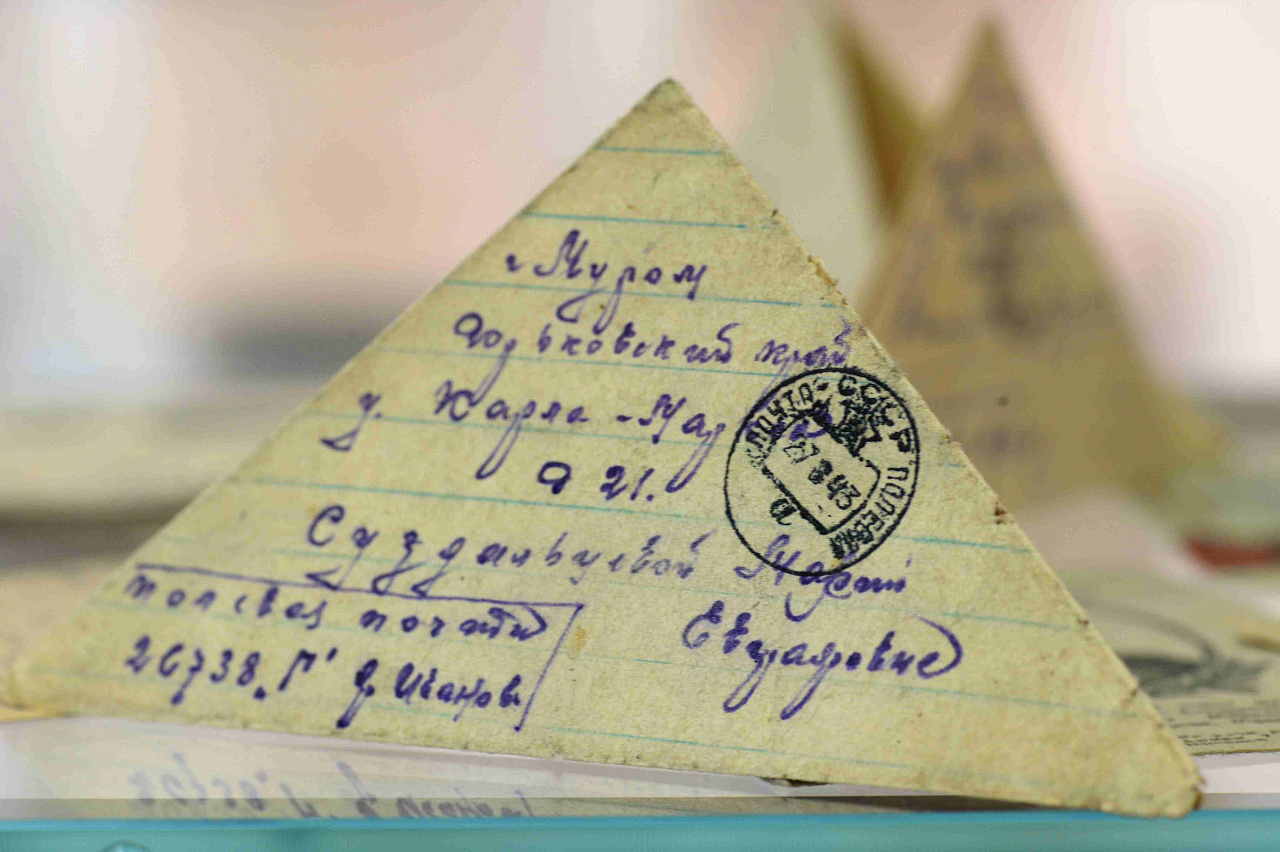 г Муром
Горьковский край
у. Карла-Маркса
д 21.
Суздальцевой Марии
Евграфовне
полевая почта
26738 „Г" Д. Иванов
ПОЧТА-СССР ПОЛЕВАЯ